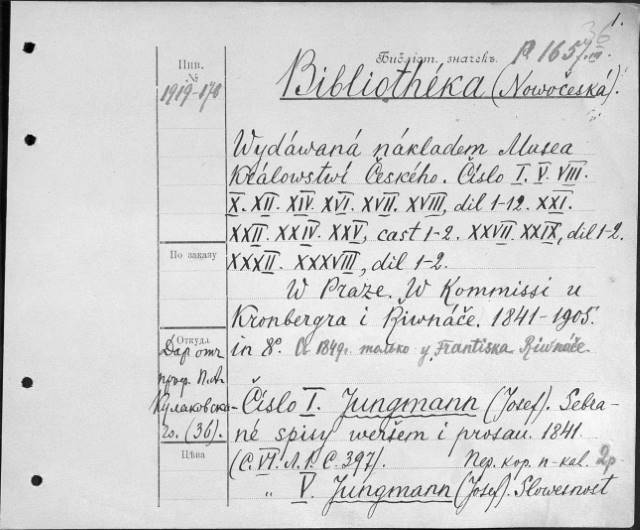 36
1.
Инв.
№
Библіот. значекъ.
P 1657.
1919-170
Bibliothéka (Nowočeská).
Wydáwaná nákladem Musea
Králowstwí Českého. Číslo I. V. VIII.
X. XII. XIV. XVI. XVII. XVIII, dil 1-12. XXI.
XXII. XXIV. XXV, cast 1-2. XXVII. XXIX, dil 1-2.
XXXII. XXXVIII, dil 1-2.
По заказу
W Praze. W Kommissi u
Kronbergra i Riwnáče. 1841-1905.
in 8º. Съ 1849г. только у Frantiska Riwnáče.
Откуда
Даръ отъ
проф. П. А.
Кулаковска-
го. (36).
Цѣна
Číslo I. Jungmann (Josef). Sebra-
né spisy weršem i prosau. 1841.
(С. VI. Л. 1. С. 397). Пер. кор. п-кал. 2р
„ V. Jungmann (Josef). Slowesnost